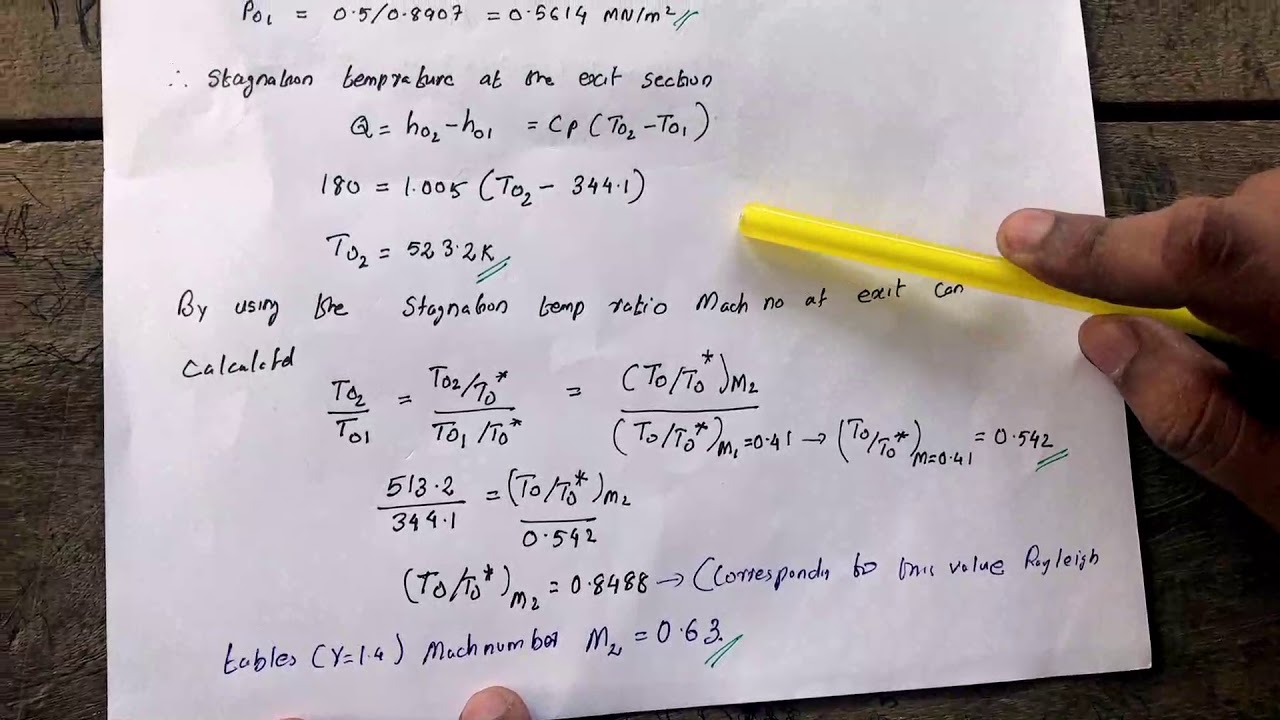 P01 = 0.5/0.8907 = 0.5614 MN/m²
∴ Stagnation temprature at the exit section
Q = h02 - h01 = Cp (T02 - T01)
180 = 1.005 (T02 - 344.1)
T02 = 523.2K
By using the Stagnation temp ratio Mach no at exit can
Calculated
T02/T01 = (T02/T0*)/(T01/T0*) = (T0/T0*)M2 / (T0/T0*)M1=0.41 → (T0/T0*)M=0.41 = 0.542
513.2/344.1 = (T0/T0*)M2 / 0.542
(T0/T0*)M2 = 0.8488 → (Corresponding to this value Rayleigh
tables (γ=1.4) Mach number M2 = 0.63